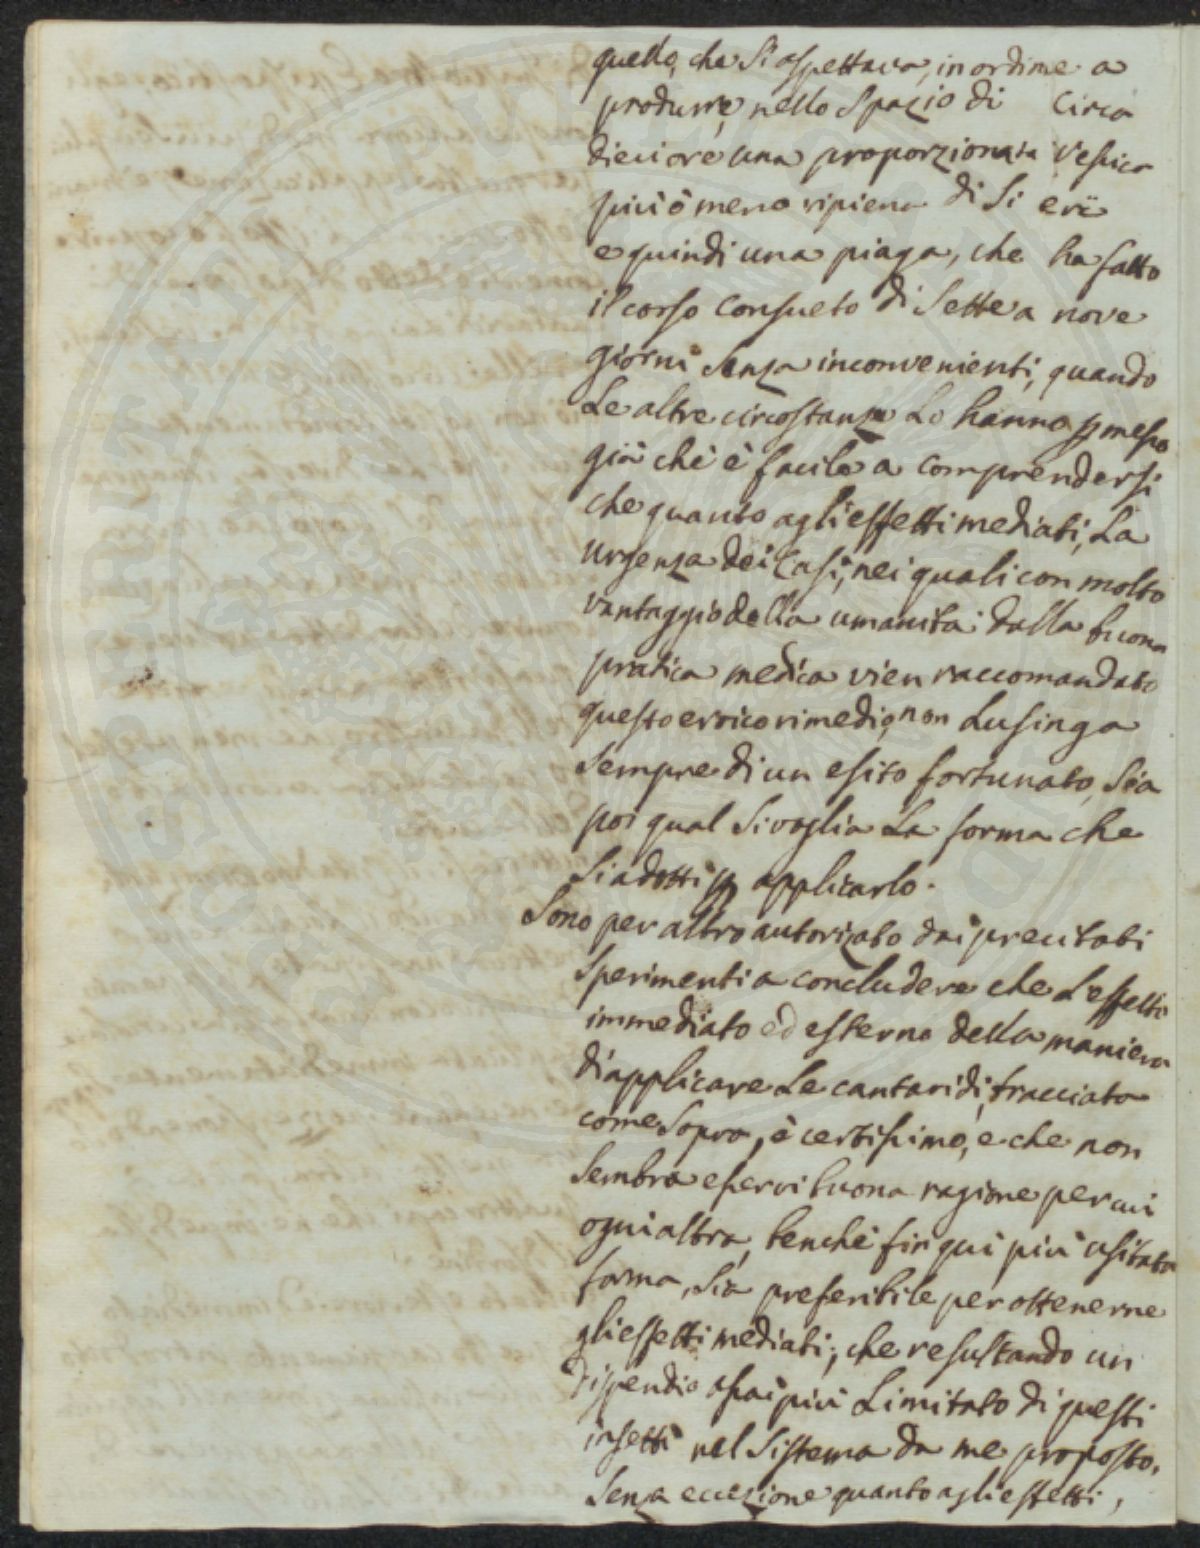 quello, che Si aspettava, in ordine a
produrre, nello Spazio di Circa
dieci ore una proporzionata Vesica
più ò meno ripiena di Si erò
e quindi una piaga, che ha fatto
il corso Consueto di Sette a nove
giorni Senza inconvenienti, quando
Le altre circostanze Lo hanno pmesso
già chè è facile a comprendersi
che quanto agli effetti mediati, La
Urgenza dei Casi, nei quali con molto
vantaggio della umanità dalla buona
pratica medica vien raccomandato
questo eroico rimedio, non Lusinga
Sempre di un esito fortunato, Sia
poi qual Si voglia La forma che
Si adotti p applicarlo.
Sono per altro autorizato dai precitati
Sperimenti a concludere che L'effetto
immediato ed esterno della maniera
di applicare Le cantaridi, tracciata
come Sopra, è certissimo, e che non
Sembra esservi buona ragione per cui
ogni altra, benchè fin qui più usitata
forma, Sia preferibile per ottenerne
gli effetti mediati; che resultando un
dispendio assai più Limitato di questi
insetti nel Sistema da me proposto,
Senza eccezione quanto agli effetti,